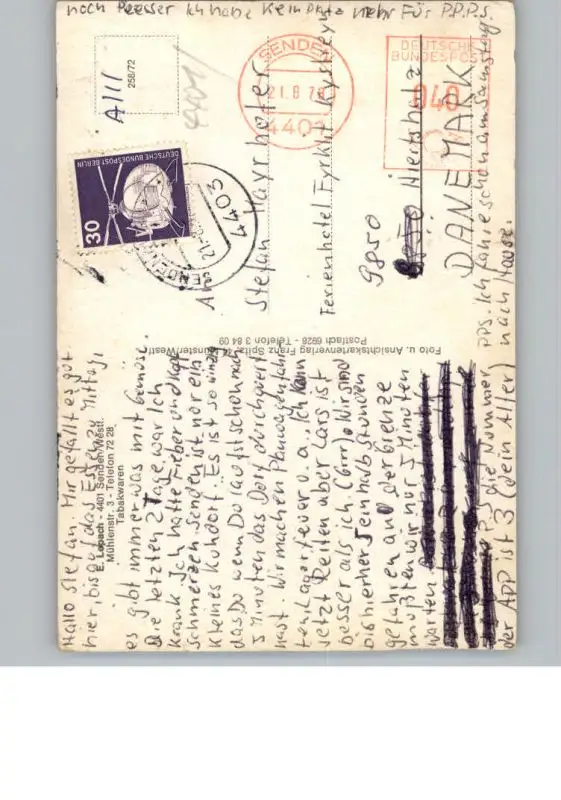 noch besser Ich habe kein Platz mehr Für P.P.P.S.
Hallo Stefan. Mir gefällt es gut
hier, bis auf das Essen. Mittags
es gibt immer was mit Gemüse.
Die letzten 2 Tage war Ich
krank. Ich hatte Fieber und Kopf
schmerzen Senden ist nor ein
kleines Kuhdorf. Es ist so winzig
das, Du wenn Du laufst schon nach
5 Minuten das Dorf durchquert
hast. Wir machen Planwagenfahr
ten, Lagerfeuer u.a. Ich kann
jetzt Reiten aber Lars ist
besser als ich (Grr). Wir sind
bis hierher 5 einhalb Stunden
gefahren an der Grenze
mußten wir nur 5 Minuten
warten
P.S. die nummer
der APP ist 3 (dein Alter)
PPS. Ich fahre schon am Samstag.
nach Hause.
E. Lopach - 4401 Senden/Westf.
Mühlenstr. 3 - Telefon 72 28
Tabakwaren
Foto u. Ansichtskartenverlag Franz Spitz Münster/Westf.
Postfach 6928 - Telefon 3 84 09
A III
258/72
4401
DEUTSCHE BUNDESPOST BERLIN
30
4403
SENDEN
SENDEN
21.8.78
4401
DEUTSCHE
BUNDESPOST
040
An
Stefan Mayrhofer
Ferienhotel Fyrklit Kystvej
9850
DÄNEMARK